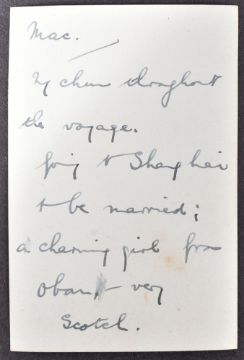 Mac.
My chum throughout
the voyage.
Going to Shanghai
to be married;
a charming girl from
Oban, & very
Scotch.